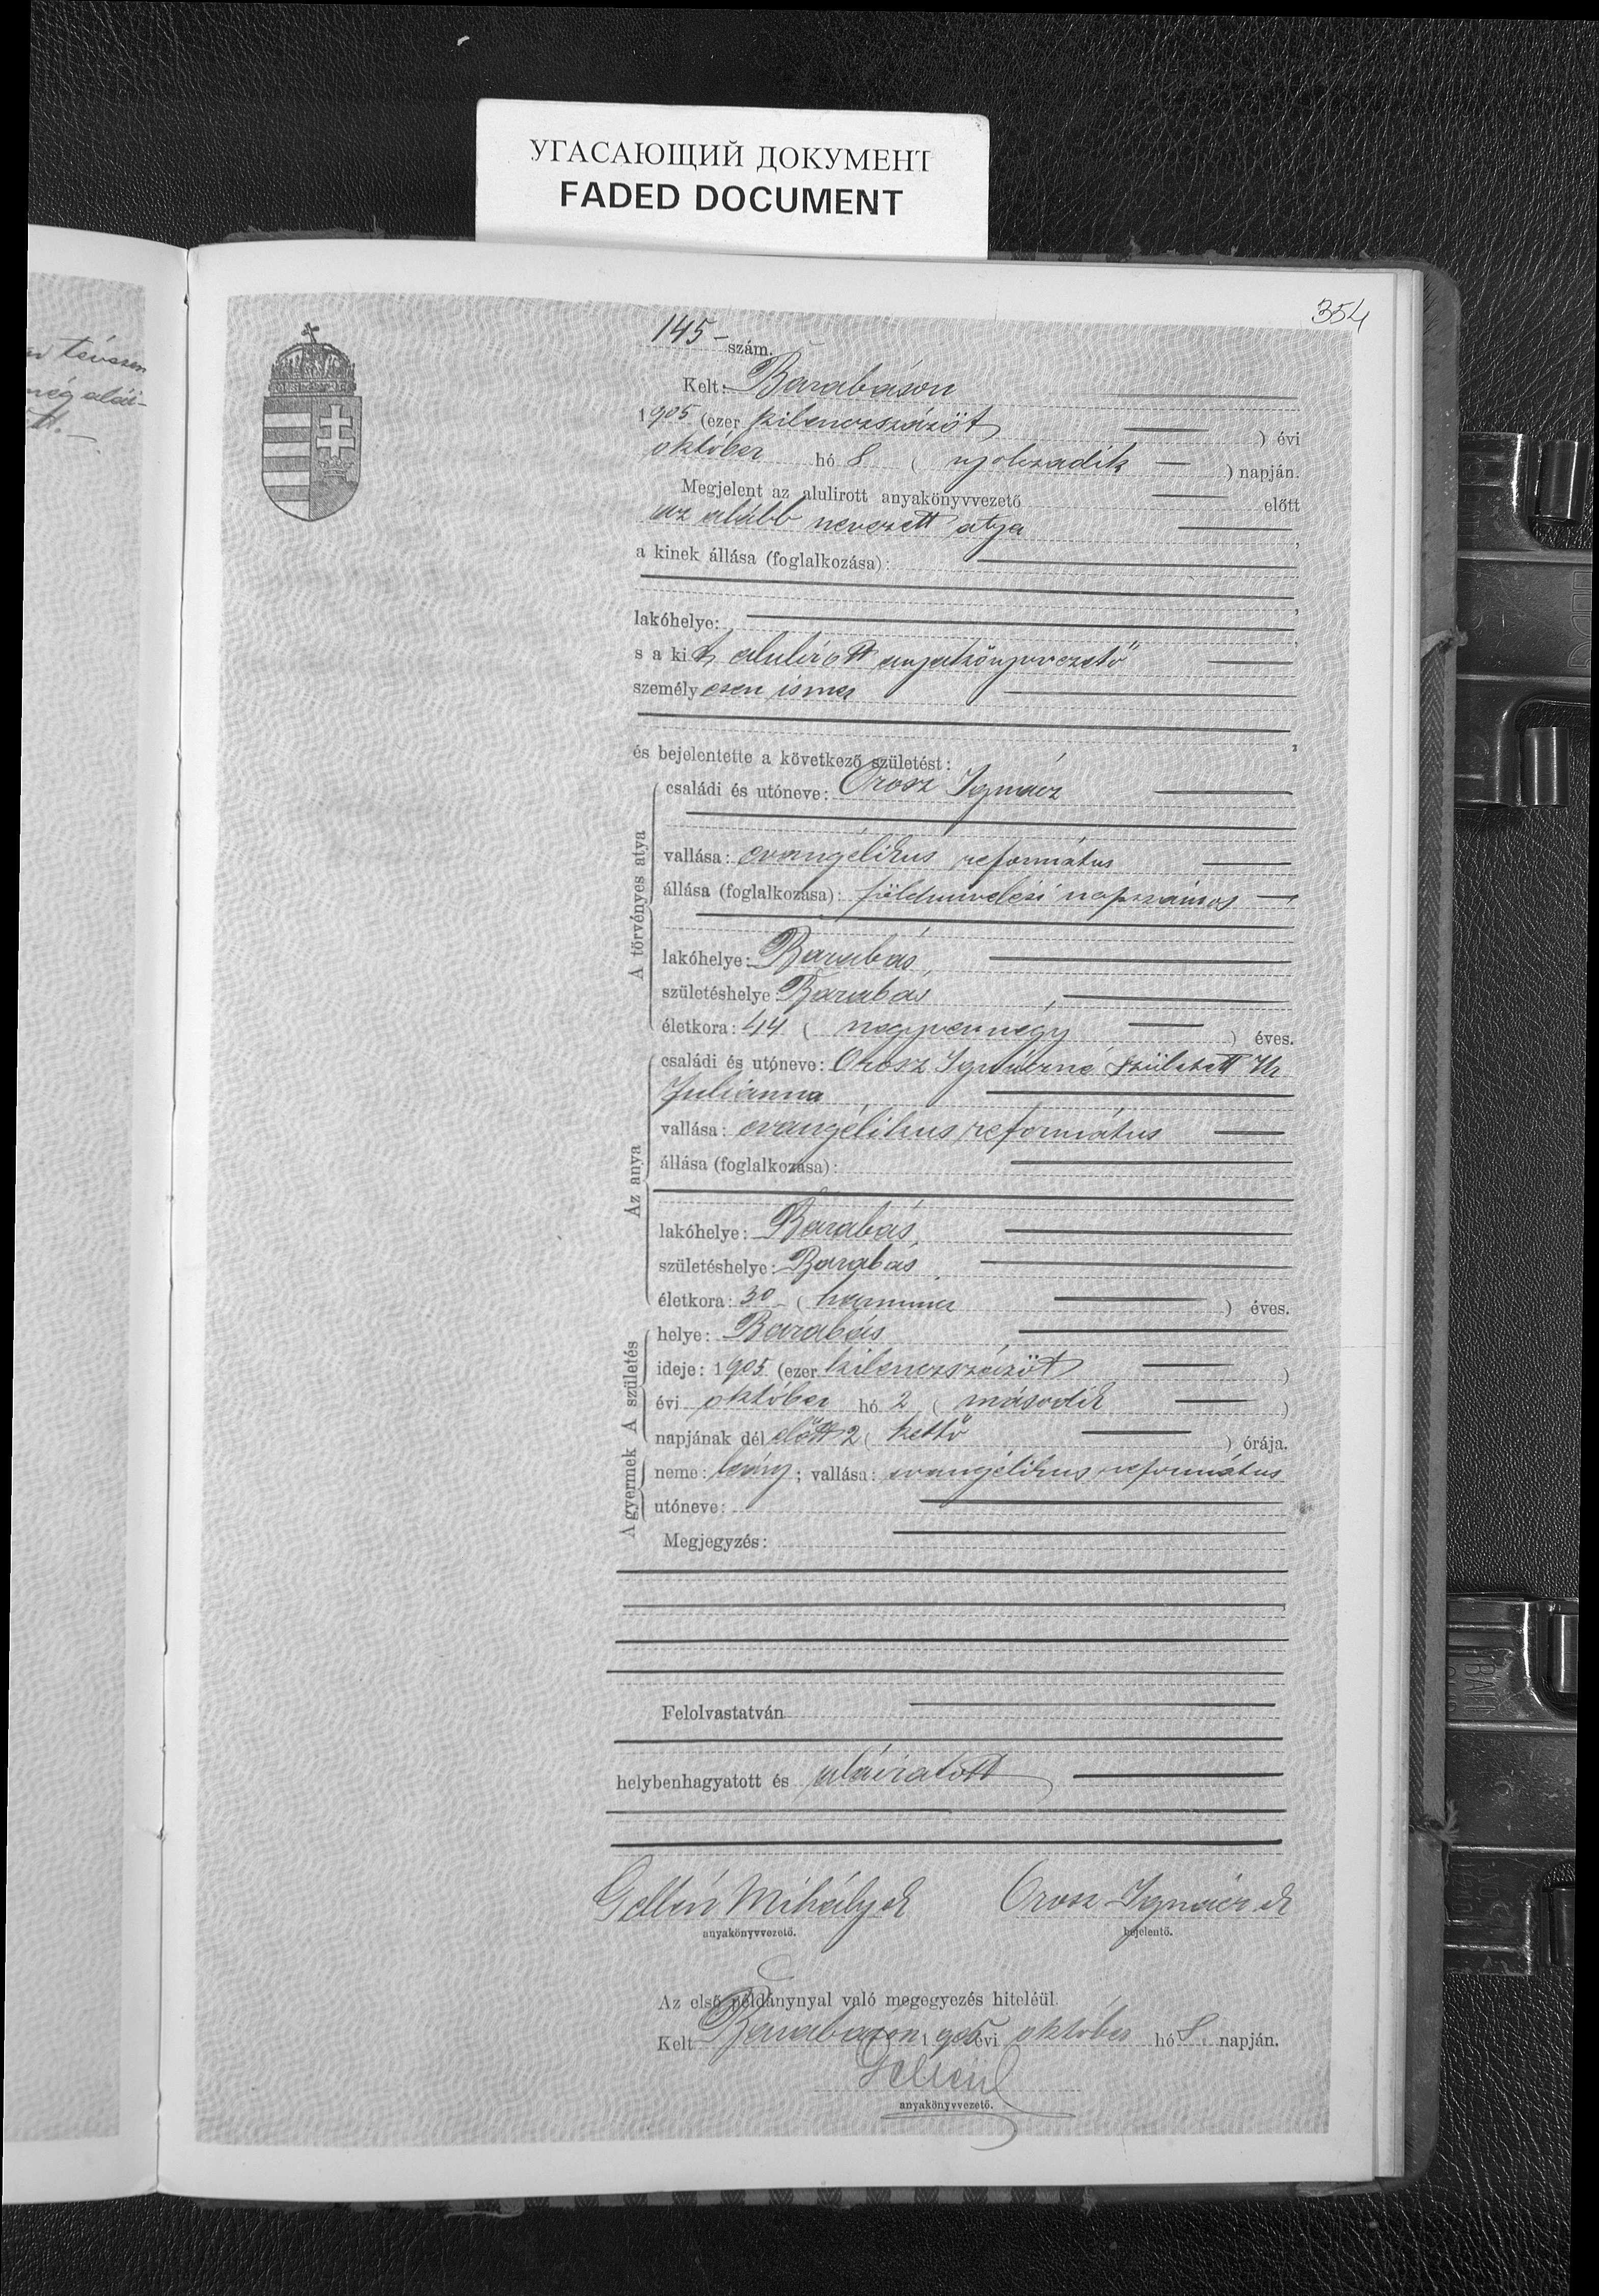 УГАСАЮЩИЙ ДОКУМЕНТ
FADED DOCUMENT
354
tévesen
még alái-
tt. —
145 – szám.
Kelt: Barabáson
1905 (ezer kilenczszázöt) évi
október hó 8 ( nyolczadik — ) napján.
Megjelent az alulirott anyakönyvvezető előtt
az alább nevezett atya ,
a kinek állása (foglalkozása):
lakóhelye: ,
s a kit alulírott anyakönyvvezető
személyesen ismer
,
és bejelentette a következő születést:
A törvényes atya
családi és utóneve: Orosz Ignácz
vallása: evangélikus református
állása (foglalkozása): földmivelési napszámos —
lakóhelye: Barabás,
születéshelye: Barabás,
életkora: 44 ( negyvennégy ) éves.
Az anya
családi és utóneve: Orosz Ignáczné született Ur
Julianna
vallása: evangélikus református
állása (foglalkozása):
lakóhelye: Barabás,
születéshelye: Barabás,
életkora: 30 – ( harmincz ) éves.
A gyermek A születés
helye: Barabás,
ideje: 1905 (ezer kilenczszázöt )
évi október hó 2 ( második )
napjának dél előtt 2 ( kettő ) órája.
neme: leány; vallása: evangélikus református
utóneve:
Megjegyzés:
Felolvastatván
helybenhagyatott és aláiratott
Gellén Mihály sk Orosz Ignácz sk
anyakönyvvezető. bejelentő.
Az első példánynyal való megegyezés hiteléül.
Kelt Barabáson 1905 évi október hó 8. napján.
anyakönyvvezető.